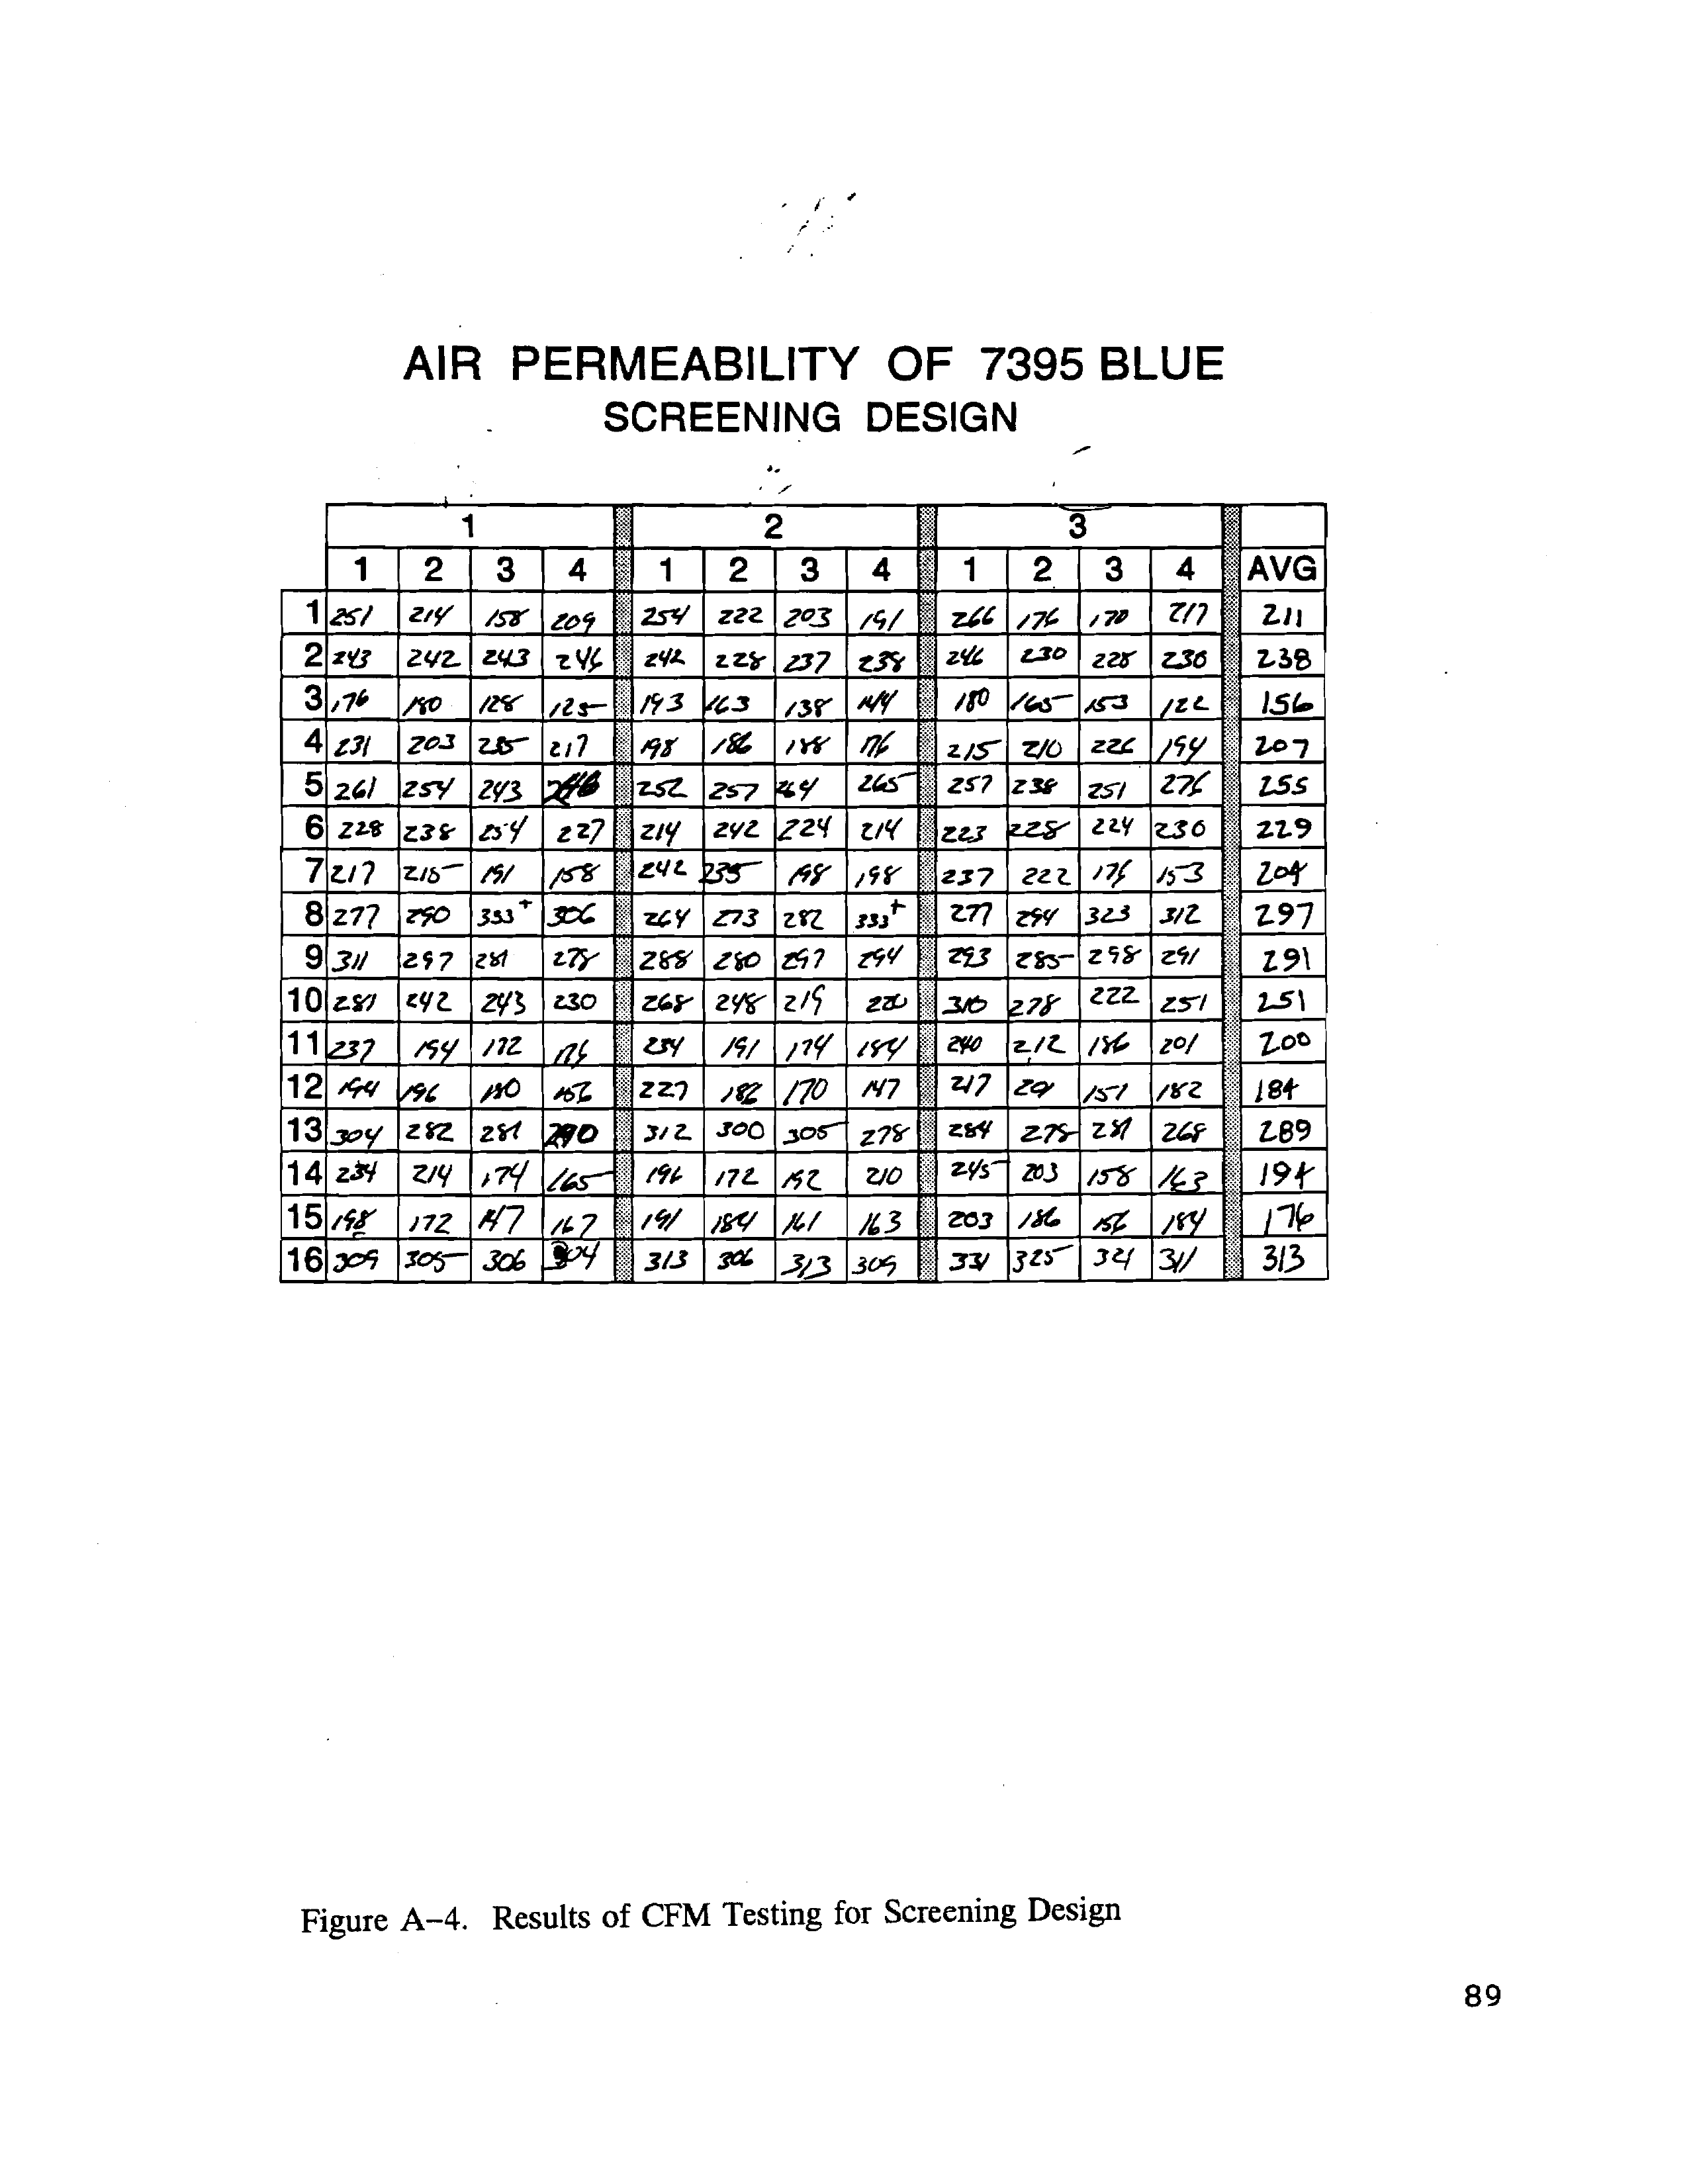 AIR PERMEABILITY OF 7395 BLUE
SCREENING DESIGN
1 2 3
1 2 3 4 1 2 3 4 1 2 3 4 AVG
1 251 214 158 209 254 222 203 191 266 176 170 217 211
2 243 242 243 246 242 228 237 238 246 230 228 230 238
3 176 180 128 125 193 163 138 144 180 165 153 122 156
4 231 203 235 217 198 186 188 176 215 210 226 194 207
5 261 254 243 246 252 257 264 265 257 238 251 276 255
6 228 238 254 227 214 242 224 214 223 228 224 230 229
7 217 215 191 158 242 235 198 198 237 222 176 153 204
8 277 290 333+ 306 264 273 282 333+ 277 294 323 312 297
9 311 297 281 278 288 280 297 294 293 285 298 291 291
10 281 242 243 230 268 248 219 220 310 278 222 251 251
11 237 194 172 176 234 191 174 184 240 212 186 201 200
12 194 196 180 156 227 182 170 147 217 201 151 182 184
13 304 282 281 290 312 300 305 278 284 278 281 268 289
14 234 214 174 165 196 172 192 210 245 203 158 163 194
15 198 172 147 167 191 184 161 163 203 186 156 184 176
16 309 305 306 304 313 306 313 309 331 325 321 311 313
Figure A-4. Results of CFM Testing for Screening Design
89